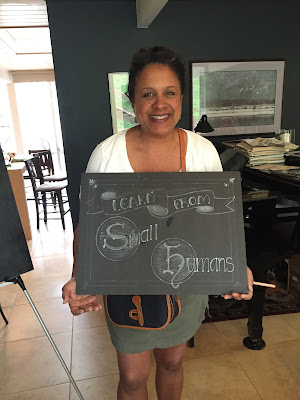 LEARN FROM
Small
Humans